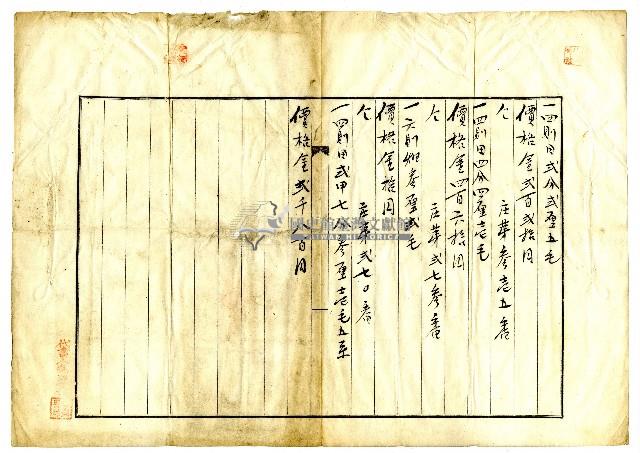 一四則田弍分弍厘五毛
價格金弍百弍拾円
仝 庄第參壱五番
一四則田四分四厘壱毛
價格金四百六拾円
仝 庄第弍七參番
一六則畑參厘弍毛
價格金拾円
仝 庄第弍七〇番
一四則田弍甲七分參厘壱毛五糸
價格金弍千八百円
國史館臺灣文獻館
TAIWAN HISTORICA